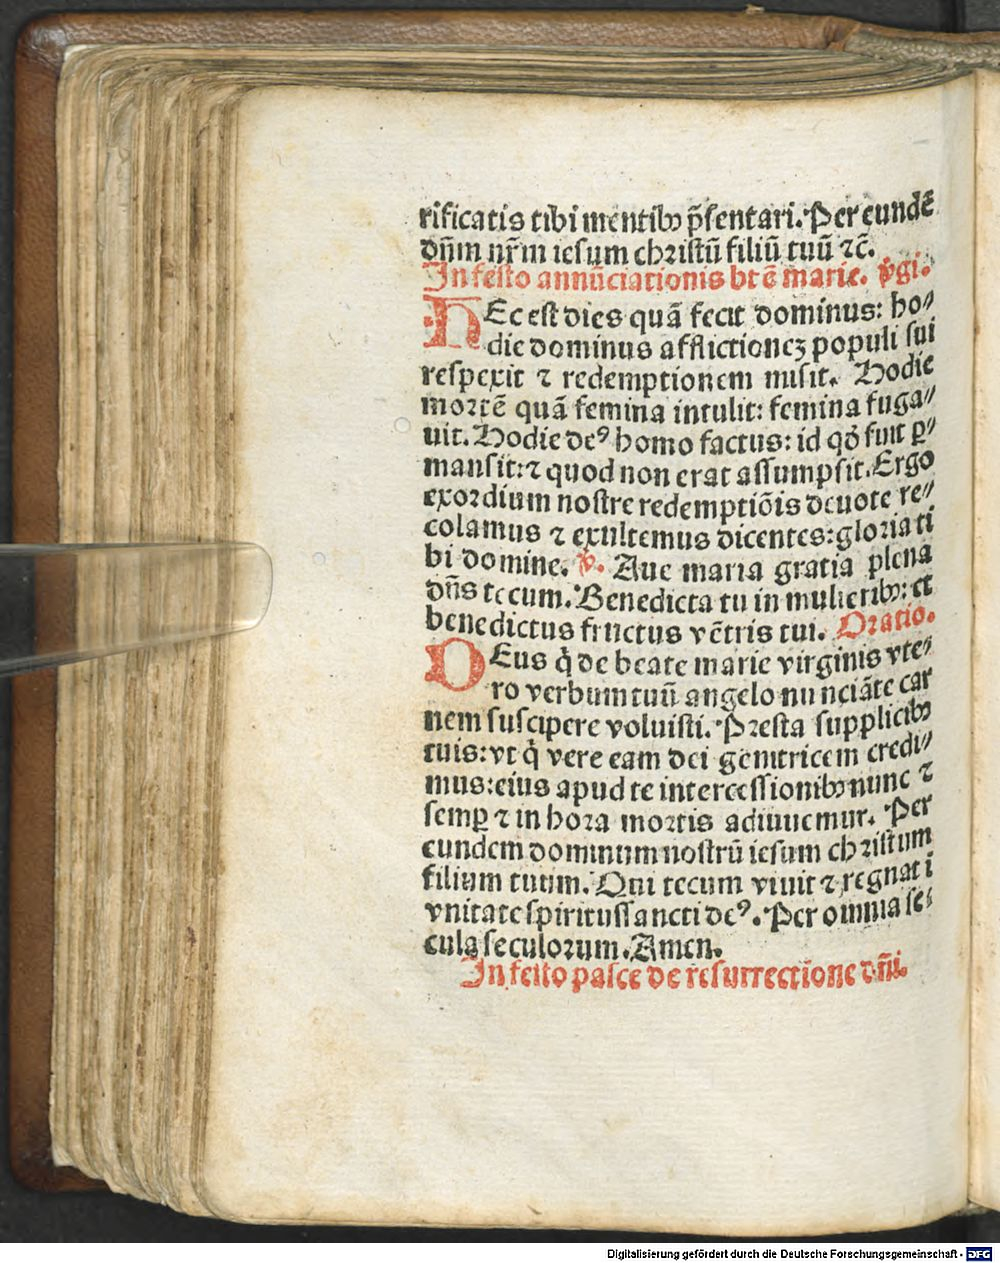 rificatis tibi mentibꝯ p̃sentari. Per eundẽ
dñm nr̃m iesum christũ filiũ tuũ ⁊c̃.
In festo annũciationis bt̃e marie. v̾gi.
HEc est dies quã fecit dominus: ho⸗
die dominus afflictioneꝫ populi sui
respexit ⁊ redemptionem misit. Hodie
mortẽ quã femina intulit: femina fuga⸗
uit. Hodie deꝰ homo factus: id qð fuit ꝑ⸗
mansit: ⁊ quod non erat assumpsit. Ergo
exordium nostre redemptiõis deuote re⸗
colamus ⁊ exultemus dicentes: gloria ti
bi domine. ℣. Aue maria gratia plena
dñs tecum. Benedicta tu in mulieribꝯ: et
benedictus fructus vẽtris tui. Oratio.
DEus q̇ de beate marie virginis vte⸗
ro verbum tuũ angelo nunciãte car
nem suscipere voluisti. Presta supplicibꝯ
tuis: vt q̇ vere eam dei genitricem credi⸗
mus: eius apud te intercessionibꝯ nunc ⁊
semꝑ ⁊ in hora mortis adiuuemur. Per
eundem dominum nostrũ iesum christum
filium tuum. Qui tecum viuit ⁊ regnat ĩ
vnitate spiritussancti deꝰ. Per omnia se⸗
cula seculorum. Amen.
In festo pasce de resurrectione dñi.
Digitalisierung gefördert durch die Deutsche Forschungsgemeinschaft - DFG